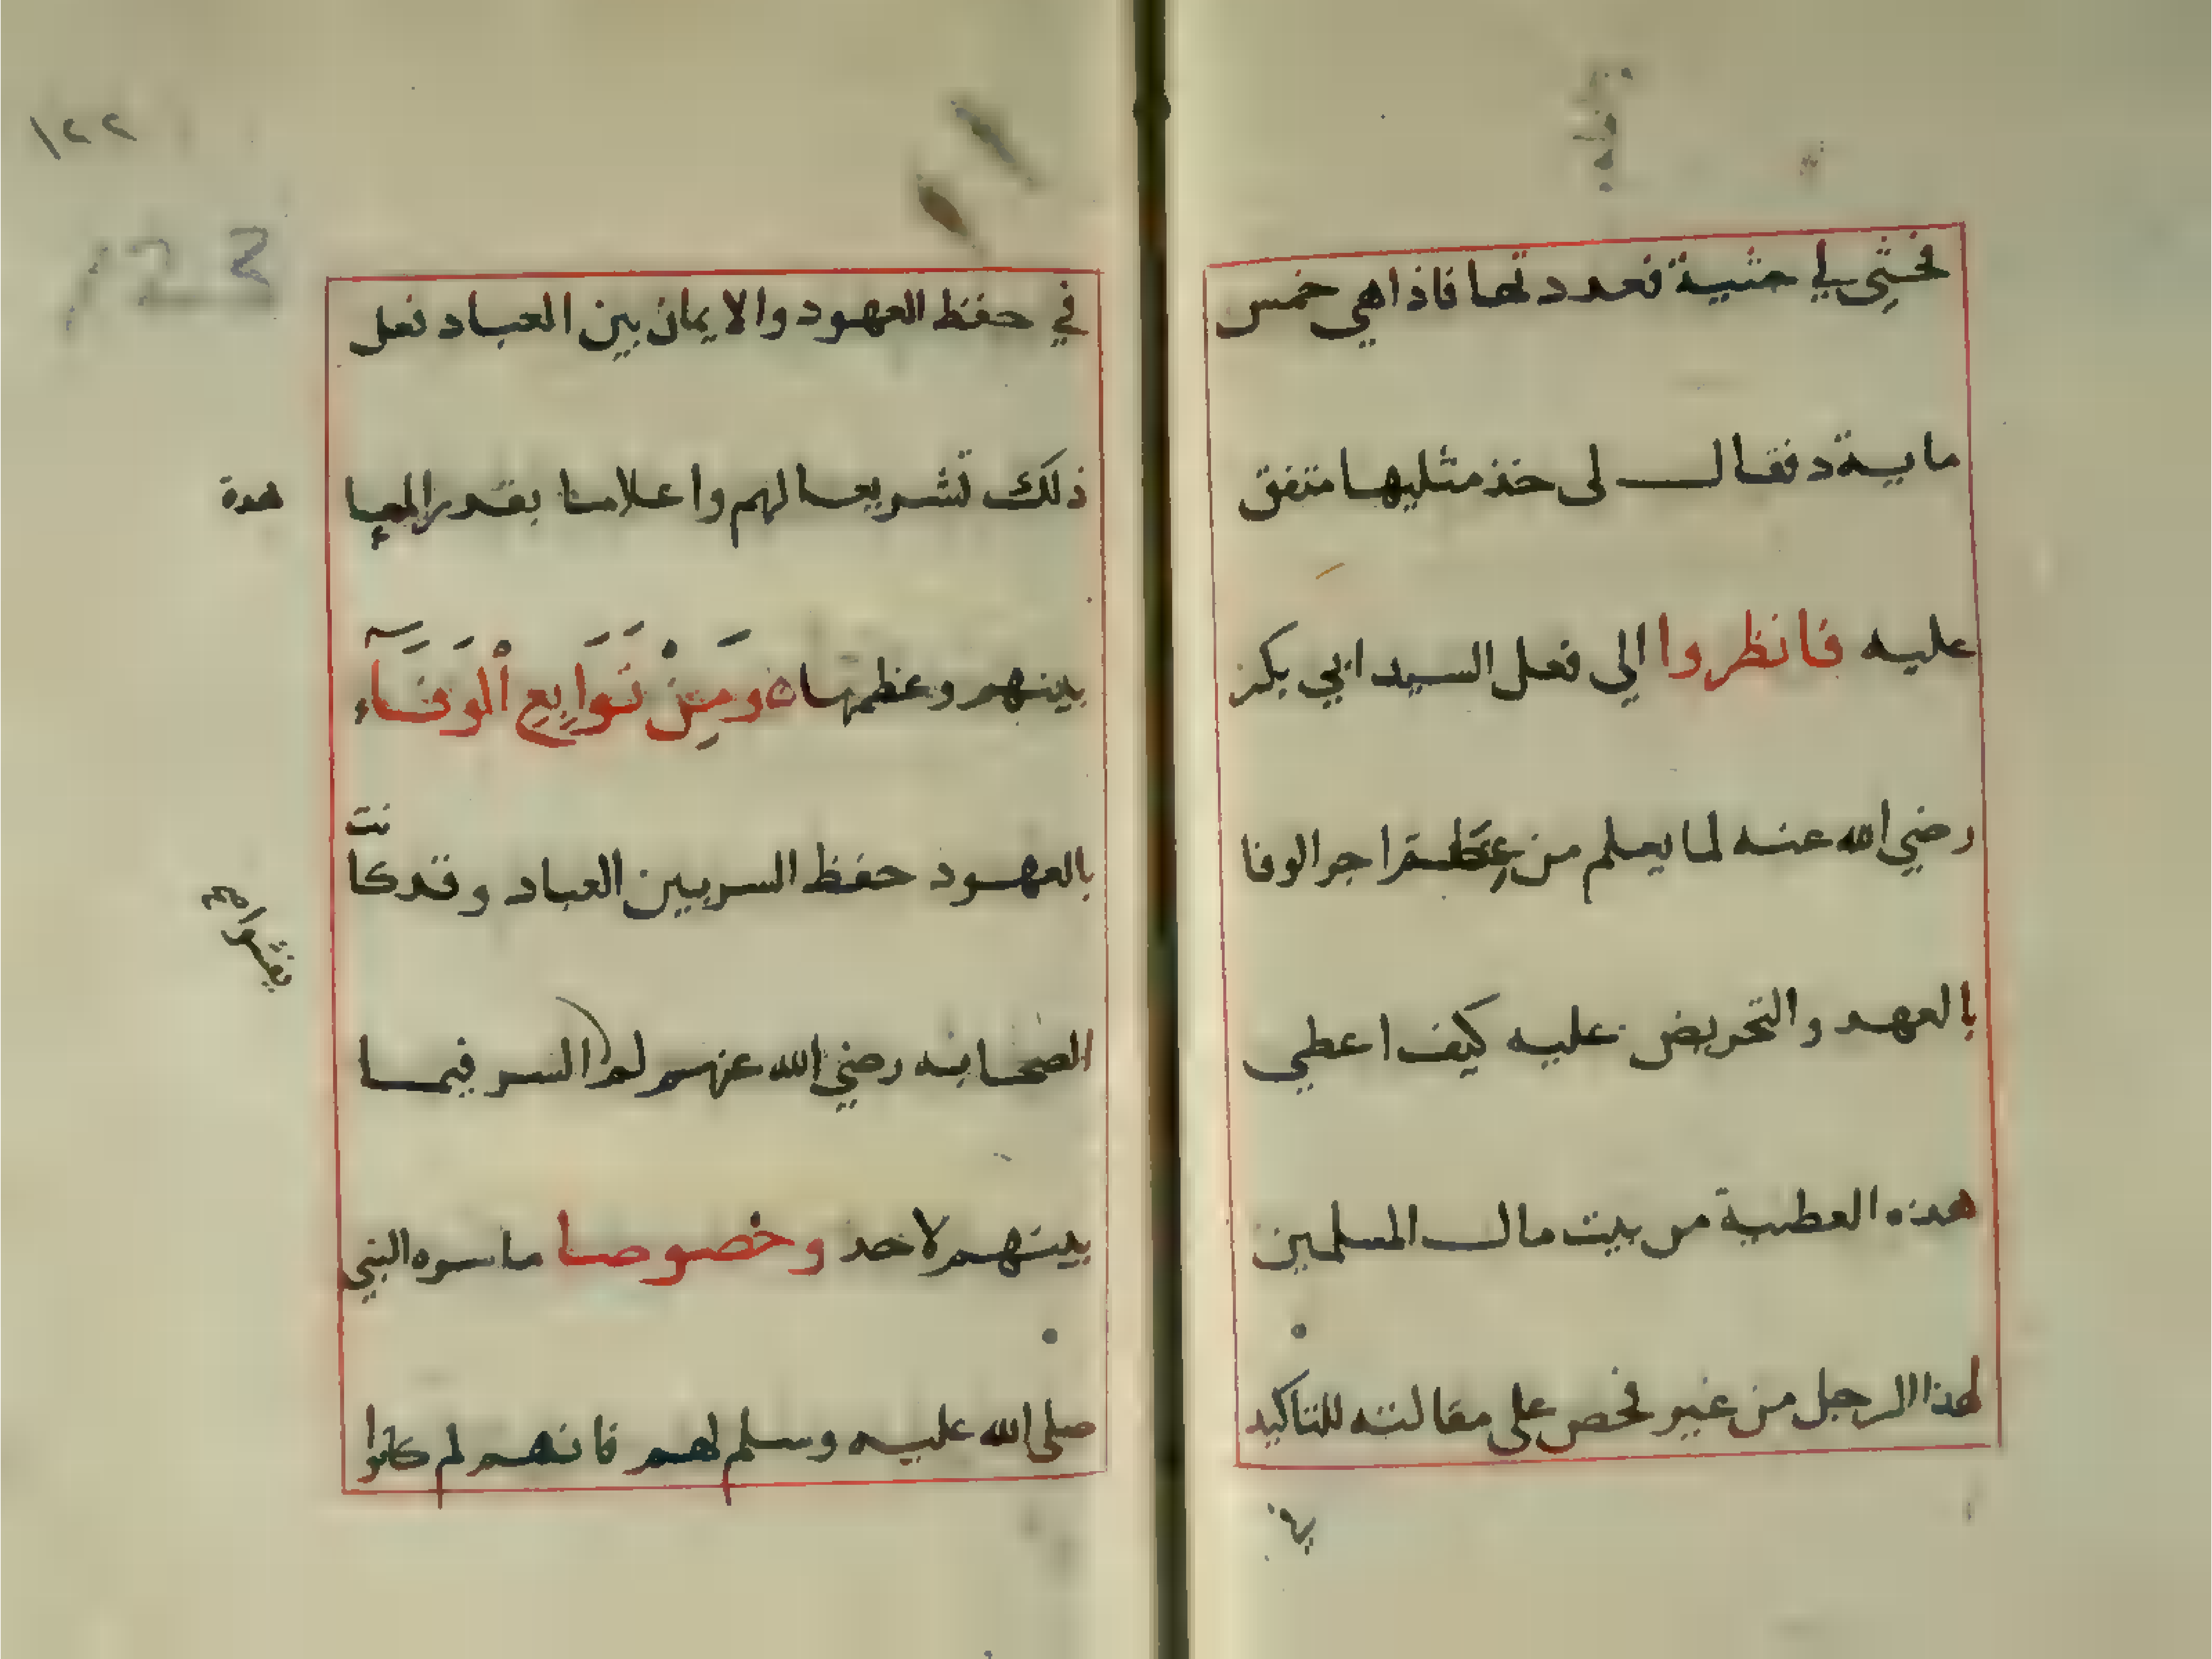 فحثى لي حثية فعددتها فاذا هي خمس
ماية فقال لى خذ مثليها متفق
عليه فانظروا الي فعل السيد ابي بكر
رضي الله عنه لما يعلم من عظم اجر الوفا
بالعهد والتحريض عليه كيف اعطي
هذه العطية من بيت مال المسلمين
لهذا الرجل من غير فحص على مقالته للتاكيد
في
١٢٢
123
في حفظ العهود والايمان بين العباد فعل
ذلك تشريعا لهم واعلاما بقدر المعا
هدة
بينهم وعظمها ومِنْ تَوَابِعِ اْلْوَفَآء
بالعهود حفظ السر بين العباد وقد كا
نت
الصحابه رضي الله عنهم لم السر فيما
يفشوا
بينهم لاحد وخصوصا ما سره النبي
صلى الله عليه وسلم لهم فانهم لم كانوا